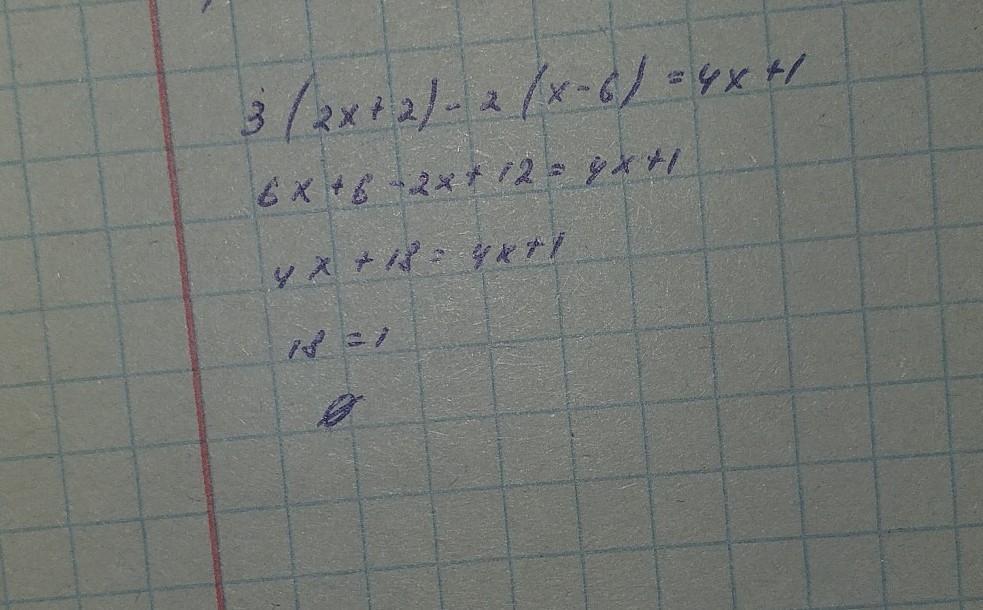 3(2x+2)-2(x-6)=4x+1
6x+6-2x+12=4x+1
4x+18=4x+1
18=1
Ø